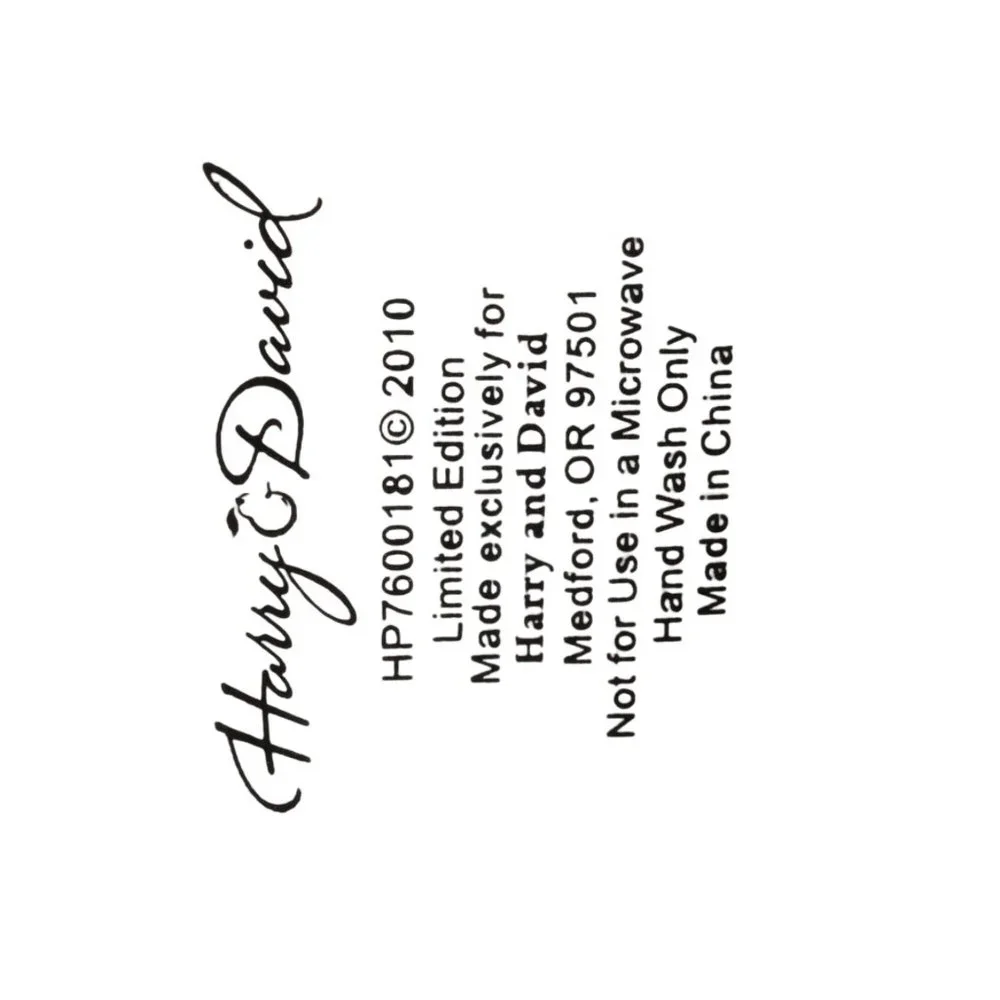 Harry David
HP7600181© 2010
Limited Edition
Made exclusively for
Harry and David
Medford, OR 97501
Not for Use in a Microwave
Hand Wash Only
Made in China